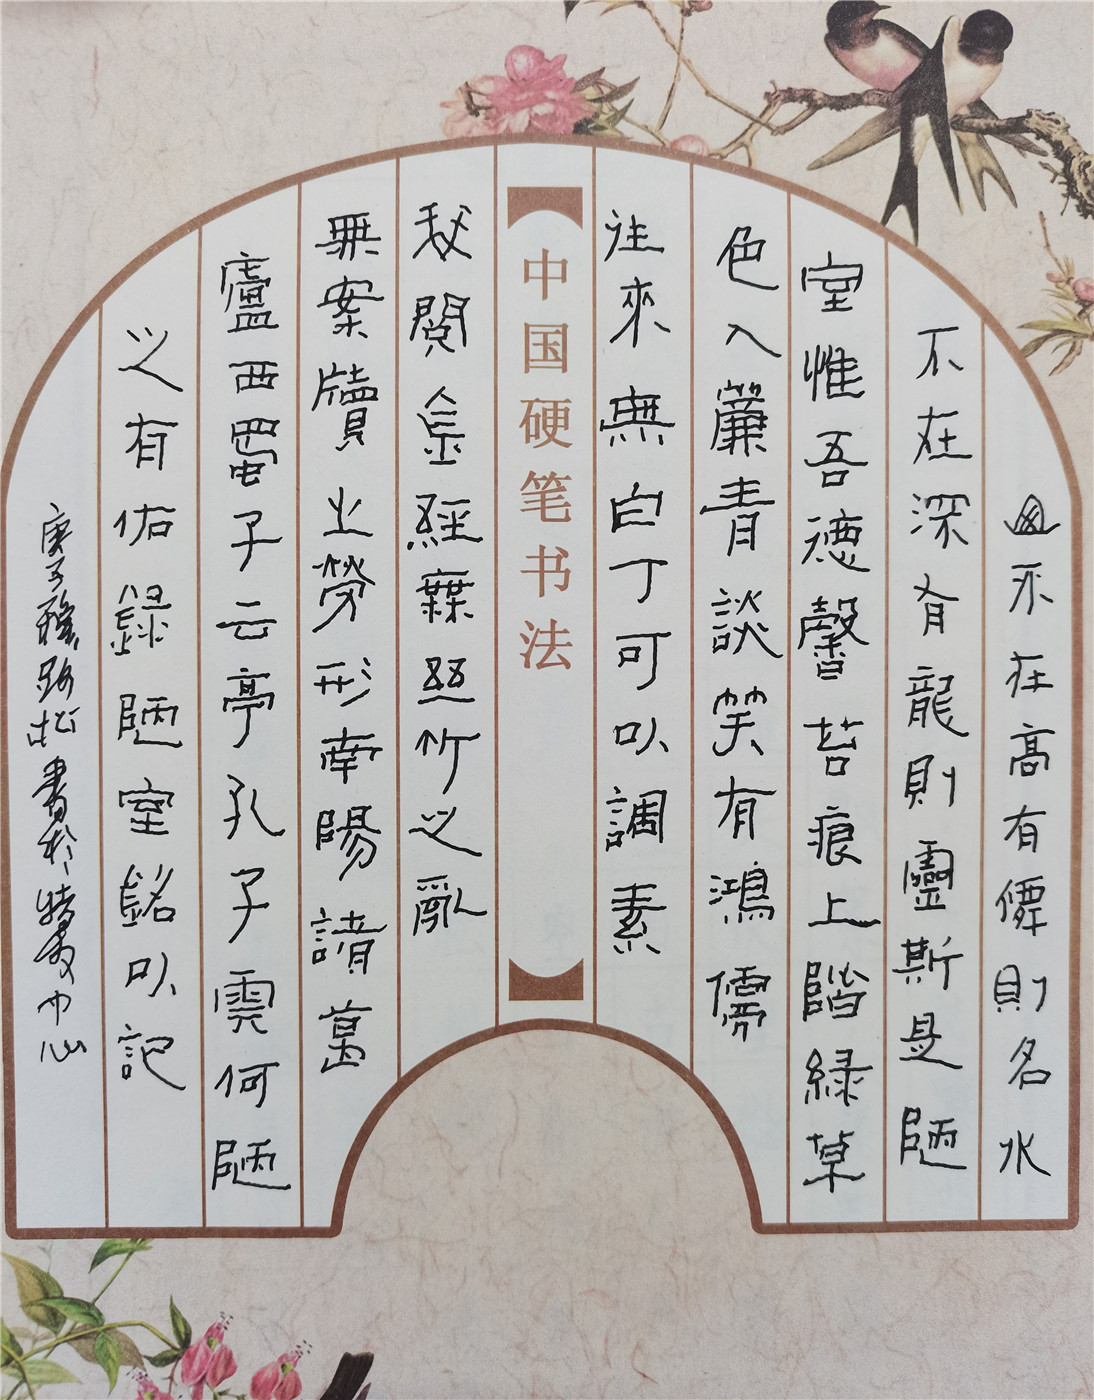 山不在高有僊則名水
不在深有龍則靈斯是陋
室惟吾德馨苔痕上階緑草
色入簾青談笑有鴻儒
往來無白丁可以調素
中国硬笔书法
閲金經無丝竹之亂
無案牘之勞形南陽諸葛
廬西蜀子云亭孔子雲何陋
之有佑録陋室銘以記
庚子路松書於中心